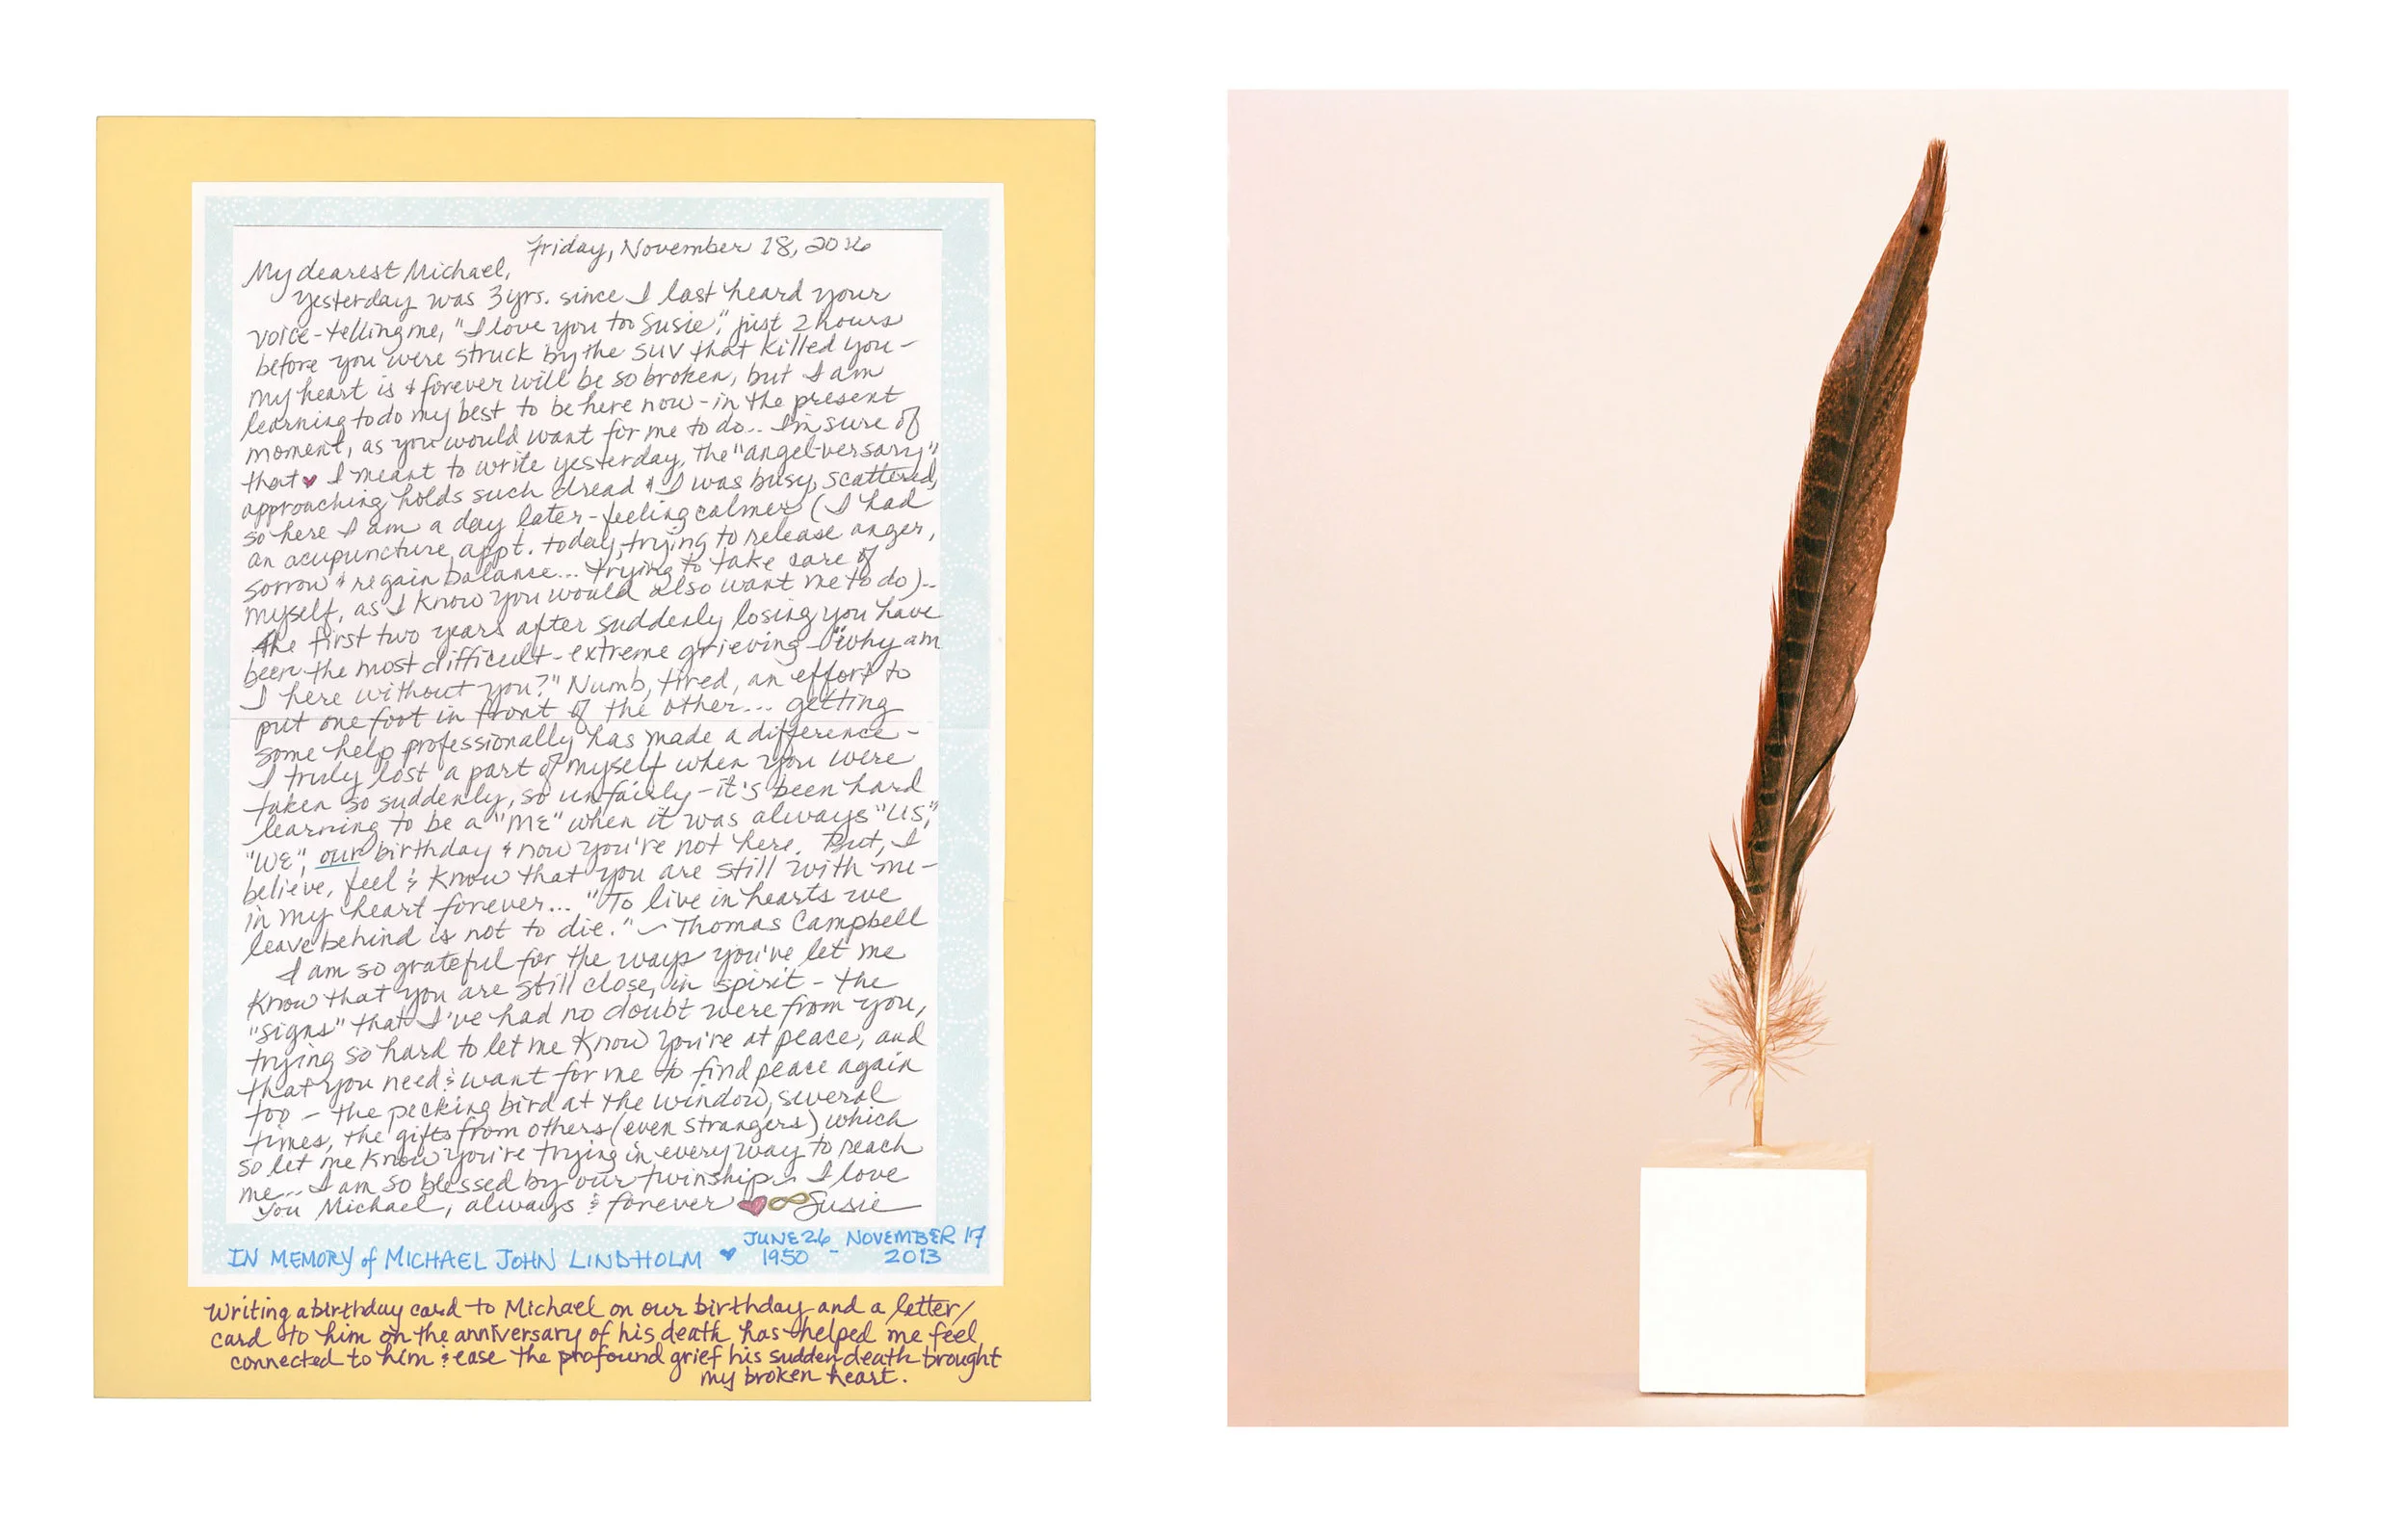 Friday, November 18, 2016
My dearest Michael,
Yesterday was 3yrs. since I last heard your
voice - telling me, "I love you too Susie," just 2 hours
before you were struck by the SUV that killed you -
my heart is & forever will be so broken, but I am
learning to do my best to be here now - in the present
moment, as you would want for me to do.. I'm sure of
that ♥ I meant to write yesterday, the "angel-versary"
approaching holds such dread & I was busy, scattered,
so here I am a day later - feeling calmer (I had
an acupuncture appt. today, trying to release anger,
sorrow & regain balance... trying to take care of
myself, as I know you would also want me to do)..
The first two years after suddenly losing you have
been the most difficult - extreme grieving - "why am
I here without you?" Numb, tired, an effort to
put one foot in front of the other... getting
some help professionally has made a difference -
I truly lost a part of myself when you were
taken so suddenly, so unfairly - it's been hard
learning to be a "ME" when it was always "US,"
"WE", our birthday & now you're not here. But, I
believe, feel & know that you are still with me -
in my heart forever... "To live in hearts we
leave behind is not to die." ~ Thomas Campbell
I am so grateful for the ways you've let me
know that you are still close, in spirit - the
"signs" that I've had no doubt were from you,
trying so hard to let me know you're at peace, and
that you need & want for me to find peace again
too - the pecking bird at the window, several
times, the gifts from others (even strangers) which
so let me know you're trying in every way to reach
me... I am so blessed by our twinship ~ I love
you Michael, always & forever ♥∞ Susie
IN MEMORY of MICHAEL JOHN LINDHOLM ♥ JUNE 26 1950 - NOVEMBER 17 2013
Writing a birthday card to Michael on our birthday and a letter/
card to him on the anniversary of his death has helped me feel
connected to him & ease the profound grief his sudden death brought
my broken heart.